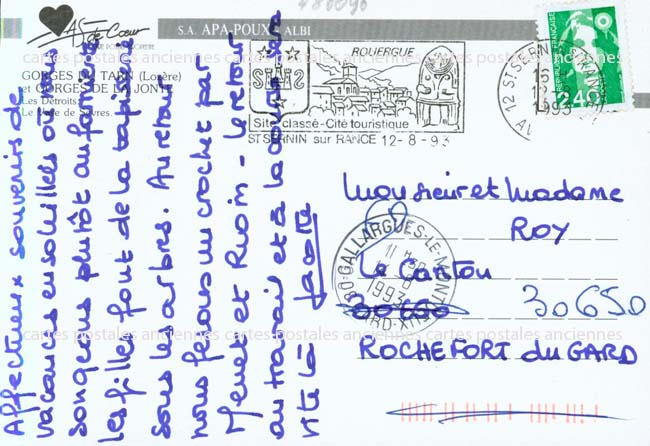 A S de Cœur
S.A. APA-POUX ALBI
GORGES DU TARN (Lozère)
et GORGES DE LA JONTE
Les Détroits.
Affectueux souvenirs de
vacances ensoleillées où nous
songeons plutôt au farniente
les filles font de la tapisserie
sous les arbres. Au retour
nous ferons un crochet par
et Riom - le retour
au travail et à la course sera
vite là
ROUERGUE
Site classé-Cité touristique
ST SERNIN sur RANCE 12-8-93
12 ST SERNIN
1993
REPUBLIQUE FRANÇAISE
2,40
Monsieur et Madame
ROY
Le Cantou
30650
ROCHEFORT du GARD
GALLARGUES-LE-MONTUEUX
1993
GARD
cartes postales anciennes cartes postales anciennes cartes postales anciennes
cartes postales anciennes cartes postales anciennes cartes postales anciennes